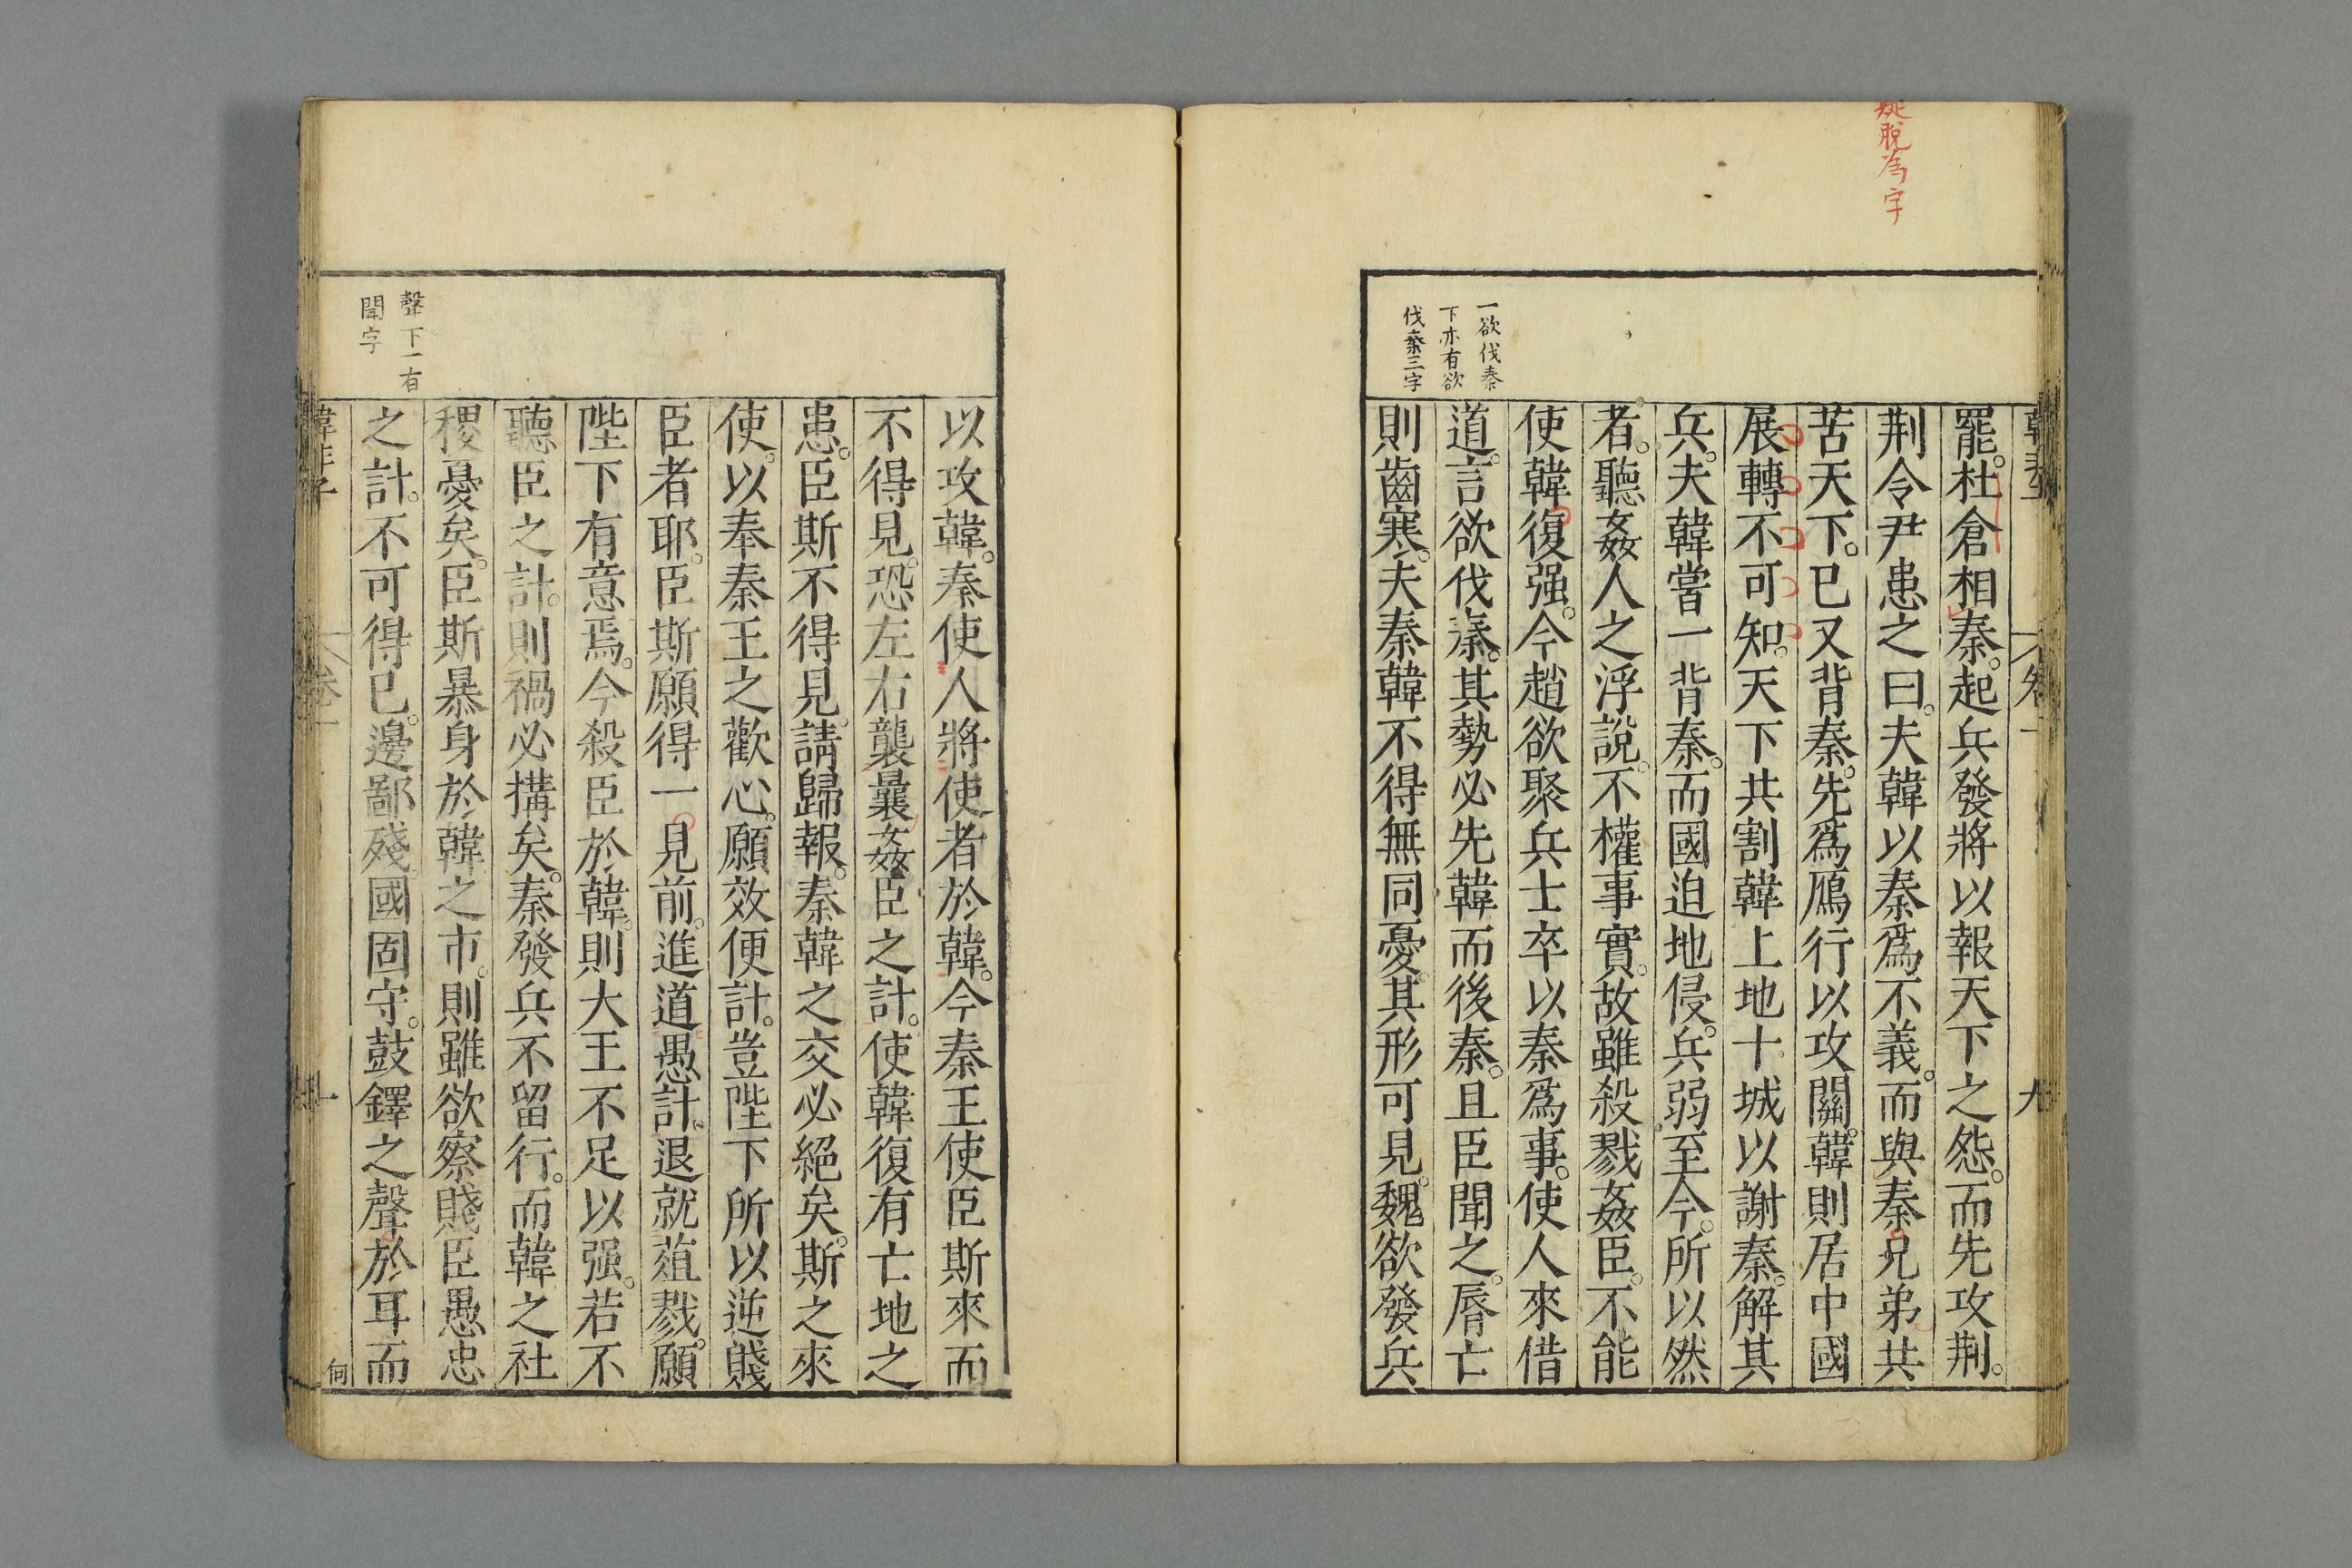 疑脫為字
一欲伐秦
下亦有欲
伐秦三字
罷。杜倉相秦。起兵發將以報天下之怨。而先攻荆。
荆令尹患之曰。夫韓以秦爲不義。而與秦兄弟共
苦天下。已又背秦。先爲鴈行以攻關。韓則居中國
展轉不可知。天下共割韓上地十城以謝秦。解其
兵。夫韓嘗一背秦。而國迫地侵。兵弱至今。所以然
者。聽姦人之浮說。不權事實。故雖殺戮姦臣。不能
使韓復强。今趙欲聚兵士卒以秦爲事。使人來借
道。言欲伐秦。其勢必先韓而後秦。且臣聞之。脣亡
則齒寒。夫秦韓不得無同憂。其形可見。魏欲發兵
聲下一有
聞字
以攻韓。秦使人將使者於韓。今秦王使臣斯來而
不得見。恐左右襲曩姦臣之計。使韓復有亡地之
患。臣斯不得見。請歸報。秦韓之交必絕矣。斯之來
使。以奉秦王之歡心。願效便計。豈陛下所以逆賤
臣者耶。臣斯願得一見前。進道愚計。退就葅戮。願
陛下有意焉。今殺臣於韓。則大王不足以强。若不
聽臣之計。則禍必搆矣。秦發兵不留行。而韓之社
稷憂矣。臣斯暴身於韓之市。則雖欲察賤臣愚忠
之計。不可得已。邊鄙殘。國固守。鼓鐸之聲於耳而
韓非子 卷一 十
何